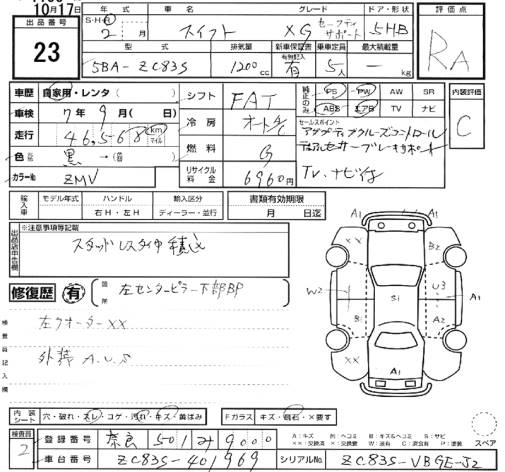 10月17日
出品番号
23
年式 車名 グレード ドア・形状
S・H・R 2年 月 スイフト XG セーフティサポート 5HB
型式 排気量 新車保証書 乗車定員 最大積載量
5BA-ZC83S 1200cc 有無記入 有 5人 kg
評価点
RA
車歴 自家用・レンタ( )
車検 7年9月( 日)
走行 46,568 km マイル
色 黒 →( )
カラーNo ZMV
シフト FAT
冷房 オートA/C
燃料 G
リサイクル料金 6960円
純正のみ PS PW AW SR
ABS エアB TV ナビ
セールスポイント
アダプティブクルーズコントロール
デュアルセンサーブレーキサポート
TV.ナビ付
内装評価
C
輸入車 モデル年式 ハンドル 輸入区分
年 右H・左H ディーラー・並行
書類有効期限
月 日迄
出品店申告欄
※注意事項等記載
スタッドレスタイヤ積込
修復歴 有 箇所 左センターピラー下部BP
検査員記入欄
左クオーターXX
外装A.U.S
A1 A1
XX B2
W2 S1 U3 A1
B1 A2
XX A1 A1
内装シート 穴・破れ・スレ・コゲ・汚れ・キズ・黄ばみ
Fガラス キズ・飛石・×要す
スペア
検査員 2
登録番号 奈良 501 み 9000
車台番号 ZC83S-401969
シリアルNo. ZC83S-VBGE-J2
A:キズ U:ヘコミ B:キズ&ヘコミ S:サビ
××:交換済 ×:要交換 W:波有 C:腐食有 P:塗装